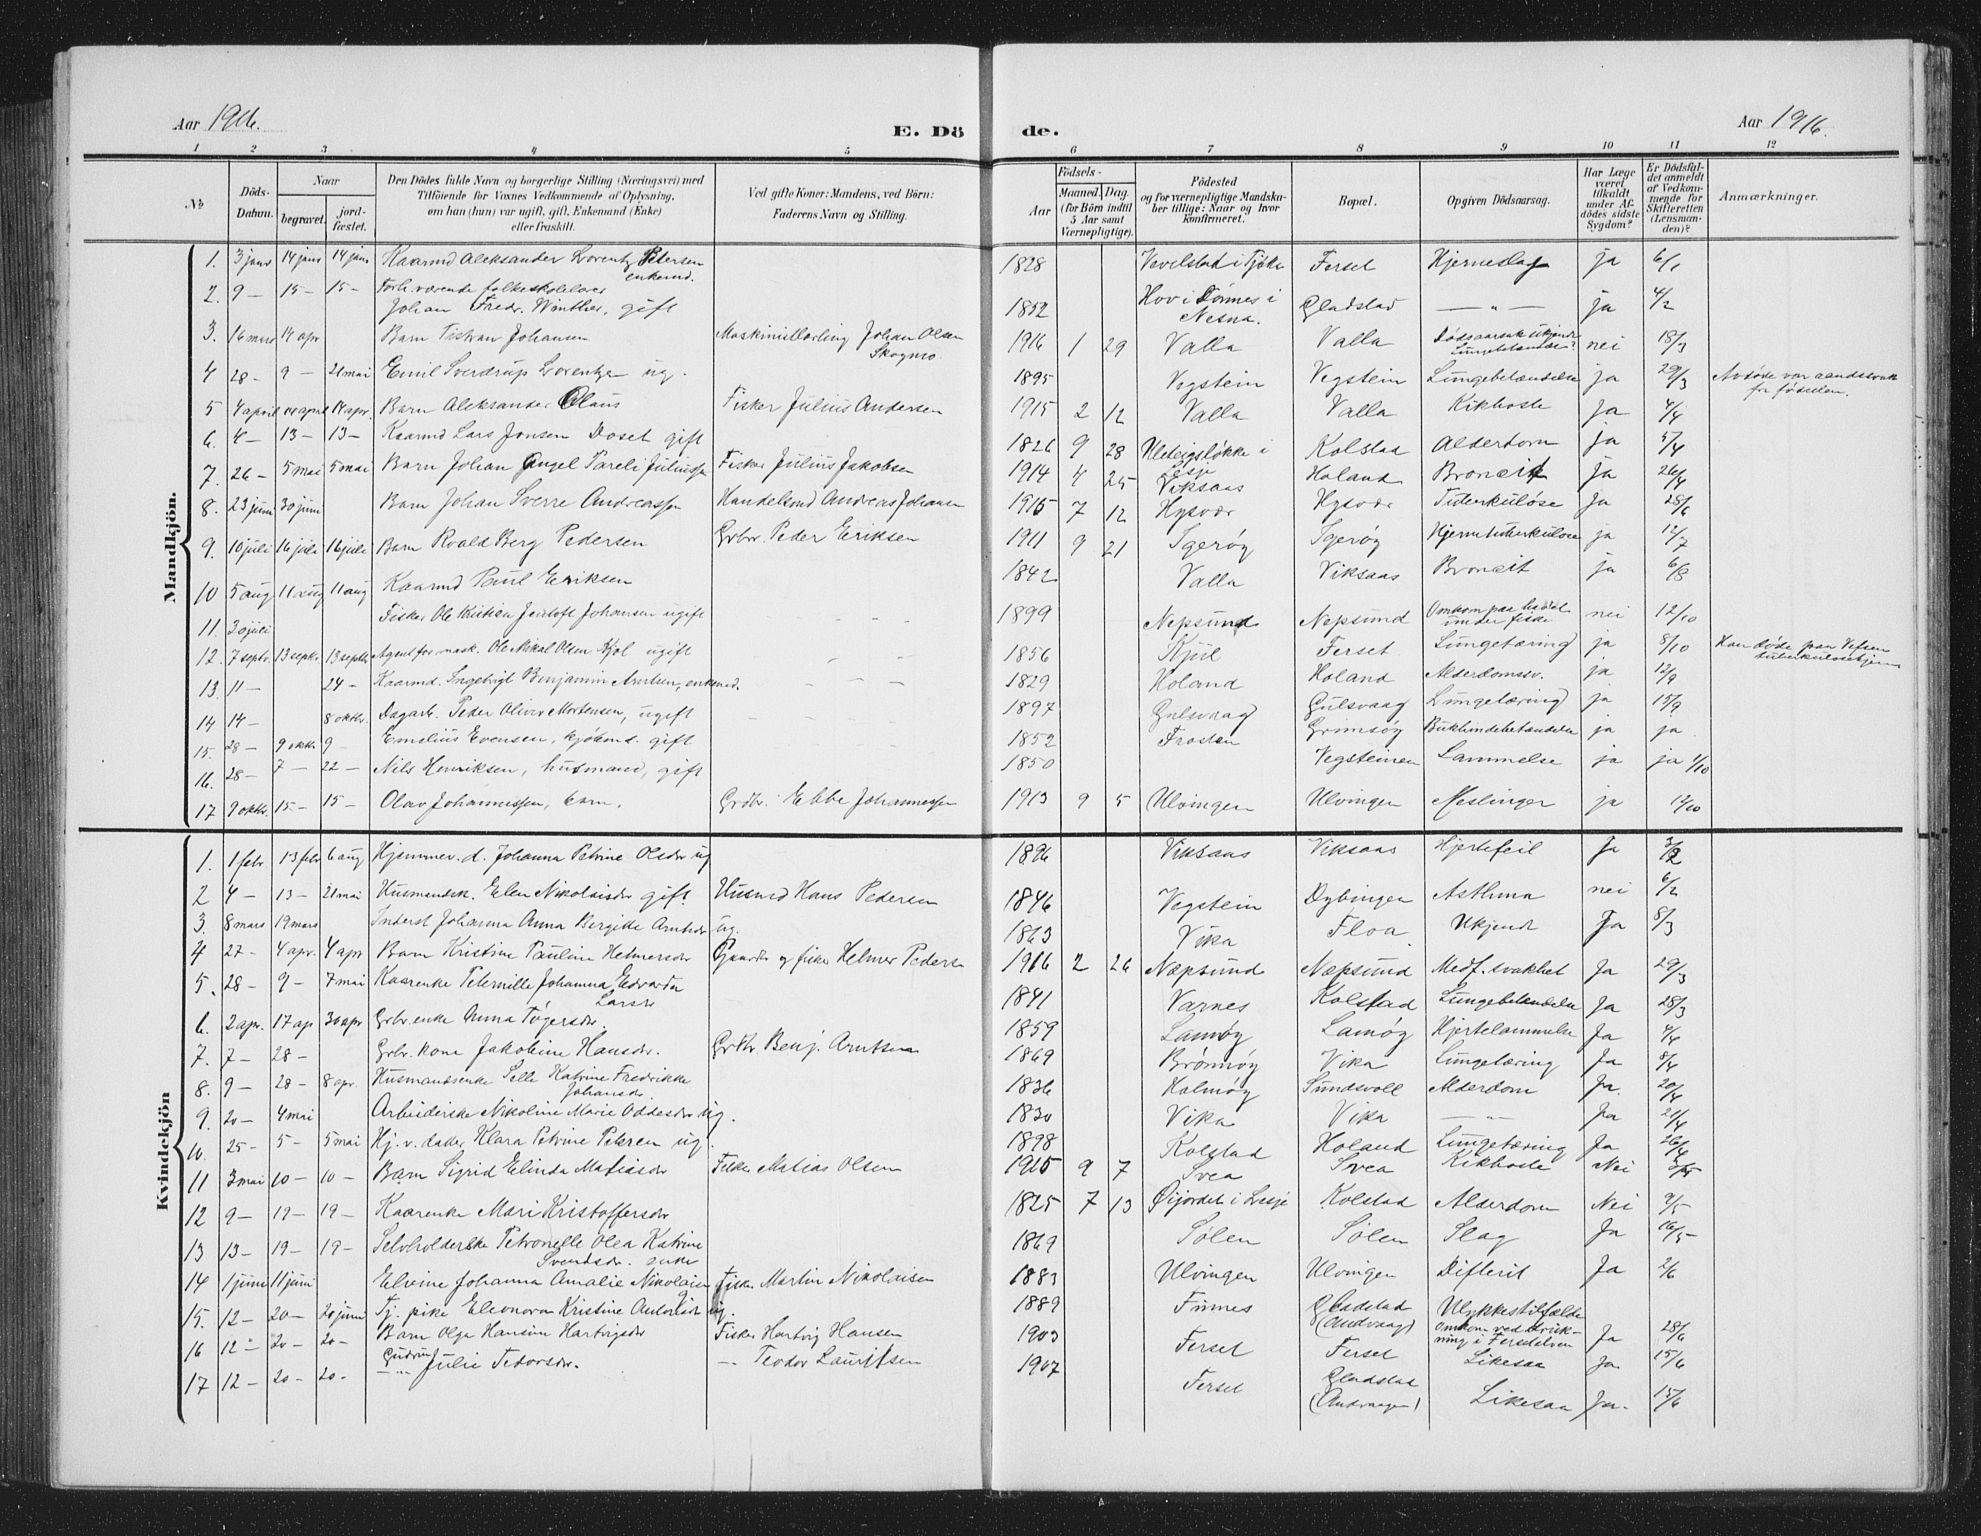 Aar 1916. E. Dö de. Aar 1916.
1 2 3 4 5 6 7 8 9 10 11 12
No Döds-Datum. Naar begravet. jord-fæstet. Den Dödes fulde Navn og borgerlige Stilling (Næringsvei) med Tilföiende for Voxnes Vedkommende af Oplysning, om han (hun) var ugift, gift, Enkemand (Enke) eller fraskilt. Ved gifte Koner: Mandens, ved Börn: Faderens Navn og Stilling. Födsels- Aar Maaned. Dag. (for Börn indtil 5 Aar samt Værnepligtige). Födested og for værnepligtige Mandskaber tillige: Naar og hvor konfirmeret. Bopæl. Opgiven Dödsaarsag. Har Læge været tilkaldt under Afdödes sidste Sygdom? Er Dödsfaldet anmeldt af Vedkommende for Skifteretten (Lensmanden)? Anmærkninger.
Mandkjön.
1. 3 janr 14 janr 14 janr Kaarmd Aleksander Lorentz Petersen enkemd. 1828 Vevelstad i Tjøtta Forset Hjerneslag ja 6/1
2. 9 — 15 — 15 — Forh.værende folkeskolelærer Johan Fredr. Winther, gift 1852 Hov i Dönnes i Nesna. Gladstad — „ — ja 4/2
3. 16 mars 14 apr Barn Tistran Johansen Maskinistlærling Johan Olsen Skogmo 1916 1 29 Valla Valla Dödsaarsak ukjendt Lungebetændelse? nei 18/3
4 28 - 9 — 21 mai Emil Sverdrup Lorentzen ug. 1895 Vegstein Vegstein Lungebetændelse ja 29/3 Avdøde var aandssvak fra fødselen.
5 4 april 14 april 14 apr. Barn Aleksander Claus Fisker Julius Andersen 1915 2 12 Valla Valla Kikhoste ja 4/4
6. 4 — 13 — 13 — Kaarmd Lars Jonsen Doset gift 1826 9 28 i Lesje Kolstad Alderdom ja 5/4
7. 26 — 5 mai 5 mai Barn Johan Angel Pareli Juliussen Fisker Julius Jakobsen 1914 4 25 Viksaas Holand Bronkit ja 26/4
8. 23 juni 30 juni Barn Johan Sverre Andreassen Handelsmd Andreas Johansen 1915 7 12 Hysvær Hysvær Tuberkuløse Ja 28/6
9. 10 juli 16 juli 16 juli Barn Roald Berg Pedersen Grbr. Peder Eriksen 1911 9 21 Igerøy Igerøy Hjernetuberkulose ja 12/7
10 5 aug 11 aug 11 aug Kaarmd Paul Eriksen 1842 Valla Viksaas Bronkit ja 6/8
11. 30 juli Fisker Ole Kristian Jentoft Johansen ugift 1899 Nepsund Nepsund Omkom paa havet under fiske nei 12/10
12. 7 septr. 13 septr. 13 septbr Agent for mask. Ole Mikal Olsen Kjøl ugift 1856 Kjül Forset Lungetæring ja 8/10 Han døde paa Vefsen tuberkulosehjem
13. 11 — 24 — Kaarmd. Ingebrigt Benjamin Arntsen, enkemd. 1829 Holand Holand Alderdomssv. ja 12/9
14 14 — 8 oktbr. Dagarb. Peder Oliver Mortensen, ugift 1897 Gulsvaag Gulsvaag Lungetæring ja 15/9
15. 28 — 9 oktbr 9 — Emelius Evensen, kjøbmd. gift 1852 Frosten Grimsøy Bukhindebetændelse ja ja
16. 28 — 7 — 22 — Nils Henriksen, husmand, gift 1850 Vegsteinen Lammelse ja ja 1/10
17 9 oktbr. 15 — 15 — Olav Johannessen, barn. Grdbr. Ebbe Johannessen 1913 9 5 Ulvingen Ulvingen Meslinger ja 12/10
Kvindekjön
1. 1 febr 13 febr 6 aug Hjemmev. d. Johanna Petrine Olsdr ug 1896 Viksaas Viksaas Hjertefeil Ja 3/2
2 4 — 13 — 21 mai Husmandsk. Elen Nikolaisdr gift. Husmd Hans Pedersen 1846 Vegstein Dybingen Asthma nei 6/2
3. 8 mars 19 mars Inderst Johanna Anna Bergitte Arntsdr ug. 1863 Vika Floa Ukjendt Ja 8/3
4 27 - 4 apr. 4 apr Barn Kristine Pauline Helmersdr Gaardbr og fisker Helmer Peders 1916 2 26 Næpsund Næpsund Medf. svakhet Ja 29/3
5. 28 — 9 — 7 mai Kaarenke Peternille Johanna Edvarda Larsdr 1841 Varnes Kolstad Lungebetændelse Ja 28/3
6. 2 apr. 17 ap 30 apr Grbr. enke Anna Tøgersdr. 1859 Lamøy Lamøy Hjertelammelse Ja 4/4
7. 7 — 28 — Grbr. kone Jakobine Hansdr. Grbr Benj. Arntsen 1869 Brønnøy Vika Lungetæring Ja 8/4
8. 9 — 28 - 8 apr. Husmandsenke Selle Katrine Fredrikke Johansdr. 1836 Halmøy Sundsvoll Alderdom Ja. 20/4
9. 20 — 4 mai Arbeiderske Nikoline Marie Oddesdr ug. 1830 Vika Vika — „ — Ja 21/4
10. 25 — 5 — 5 mai Hj. v. datter Klara Petrine Petersen ug. 1898 Kolstad Holand Lungetæring Ja 26/4
11 3 mai 10 — 10 — Barn Sigrid Elinda Matiasdr Fisker Matias Olsen 1915 9 7 Svea Svea Kikhoste Nei 3/5
12 9 — 19 — 19 — Kaarenke Mari Kristoffersdr 1825 7 13 Øijordet i Lesje Kolstad Alderdom Nei 9/5
13 13 — 19 — 19 — Selvholderske Petronelle Olea Katrine Svendsdr. enke 1869 Sølen Sølen Slag Ja 16/5
14 1 juni 11 juni Elvine Johanna Amalie Nikolaisen Fisk. Martin Nikolaisen 1883 Ulvingen Ulvingen Difterit Ja 2/6
15. 12 — 20 — 20 juni Tj. pike Eleonora Kristine Antonsdr ug. 1889 Finnes Gladstad (Andvaag) Ulykkestilfælde omkom ved drukning i Forsetelven Ja 28/6
16 12 - 20 — 20 — Barn Olga Hansine Hartvigsdr Fisker Hartvig Hansen 1903 Forset Forset Likesaa Ja. 15/6
17 12 — 20 - 20 - — „ — Gudrun Julie Tedorsdr. — Teodor Lauritsen 1907 Forset Gladstad (Andvaagen) Likesaa Ja. 15/6